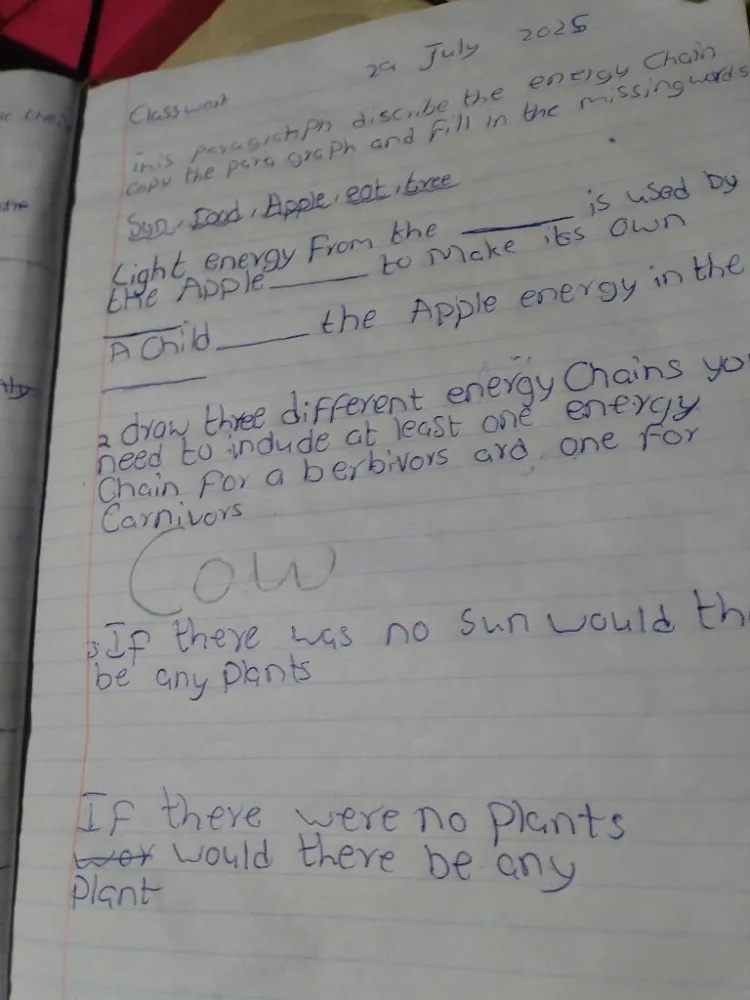 29 July 2025
Classwork
This paragraphph discribe the energy Chain
Copy the para graph and fill in the missing words
Sun, Food, Apple, eat, tree
Light energy From the ______ is used by
the Apple ______ to make its own
______
A Child ______ the Apple energy in the
______
2 draw three different energy Chains you
need to indude at least one energy
Chain for a berbivors and one for
Carnivors
Cow
3 If there was no Sun would th
be any plants
If there were no plants
would there be any
plant